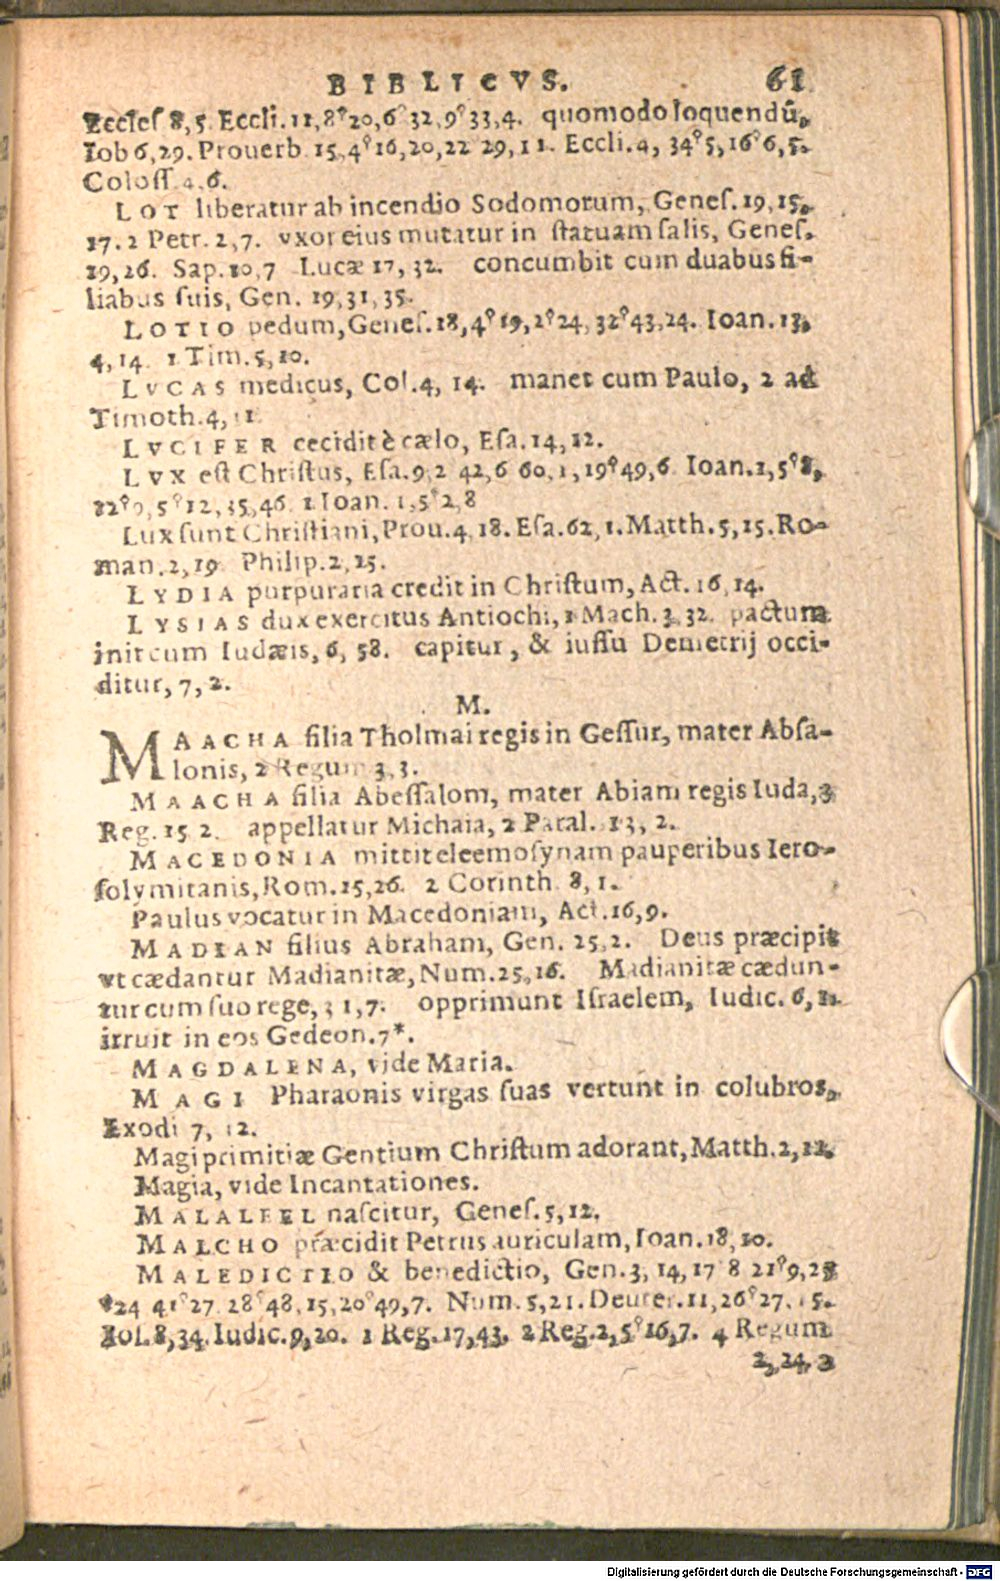 BIBLICVS. 61
Eccles 8, 5. Eccli. 11, 8⁹20, 6⁹32, 9⁹33, 4. quomodo loquendū,
Iob 6, 29. Prouerb. 15, 4⁹16, 20, 22 29, 11. Eccli. 4, 34⁹5, 16⁹6, 5.
Coloss. 4, 6.
LOT liberatur ab incendio Sodomorum, Genes. 19, 15,
17. 2 Petr. 2, 7. vxor eius mutatur in statuam salis, Genes.
19, 26. Sap. 10, 7 Lucæ 17, 32. concumbit cum duabus fi-
liabus suis, Gen. 19, 31, 35.
LOTIO pedum, Genes. 18, 4⁹19, 2⁹24, 32⁹43, 24. Ioan. 13,
4, 14. 1 Tim. 5, 10.
LVCAS medicus, Col. 4, 14. manet cum Paulo, 2 ad
Timoth. 4, 11
LVCIFER cecidit è cælo, Esa. 14, 12.
LVX est Christus, Esa. 9, 2 42, 6 60, 1, 19⁹49, 6. Ioan. 1, 5⁹8,
12⁹9, 5⁹12, 35, 46. 1 Ioan. 1, 5⁹2, 8
Lux sunt Christiani, Prou. 4, 18. Esa. 62, 1. Matth. 5, 15. Ro-
man. 2, 19. Philip. 2, 15.
LYDIA purpuraria credit in Christum, Act. 16, 14.
LYSIAS dux exercitus Antiochi, 1 Mach. 3, 32. pactum
init cum Iudæis, 6, 58. capitur, & iussu Demetrij occi-
ditur, 7, 2.
M.
MAACHA filia Tholmai regis in Gessur, mater Absa-
lonis, 2 Regum 3, 3.
MAACHA filia Abessalom, mater Abiam regis Iuda, 3
Reg. 15 2. appellatur Michaia, 2 Paral. 13, 2.
MACEDONIA mittit eleemosynam pauperibus Iero-
solymitanis, Rom. 15, 26. 2 Corinth. 8, 1.
Paulus vocatur in Macedoniam, Act. 16, 9.
MADIAN filius Abraham, Gen. 25, 2. Deus præcipit
vt cædantur Madianitæ, Num. 25, 16. Madianitæ cædun-
tur cum suo rege, 31, 7. opprimunt Israelem, Iudic. 6, 1.
irruit in eos Gedeon. 7*.
MAGDALENA, vide Maria.
MAGI Pharaonis virgas suas vertunt in colubros,
Exodi 7, 12.
Magi primitiæ Gentium Christum adorant, Matth. 2, 11.
Magia, vide Incantationes.
MALALEEL nascitur, Genes. 5, 12.
MALCHO præcidit Petrus auriculam, Ioan. 18, 10.
MALEDICTIO & benedictio, Gen. 3, 14, 17 8 21⁹9, 25
⁹24 41⁹27 28⁹48, 15, 20⁹49, 7. Num. 5, 21. Deuter. 11, 26⁹27, 15.
Ios. 8, 34. Iudic. 9, 20. 1 Reg. 17, 43. 2 Reg. 2, 5⁹16, 7. 4 Regum
2, 24, 3
Digitalisierung gefördert durch die Deutsche Forschungsgemeinschaft - DFG